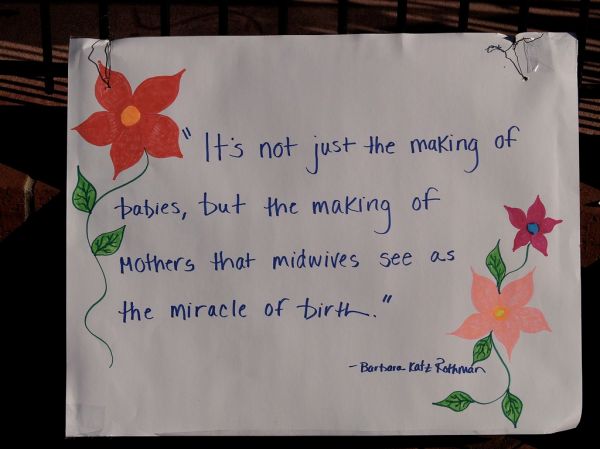 "It's not just the making of
babies, but the making of
Mothers that midwives see as
the miracle of birth."
-Barbara Katz Rothman